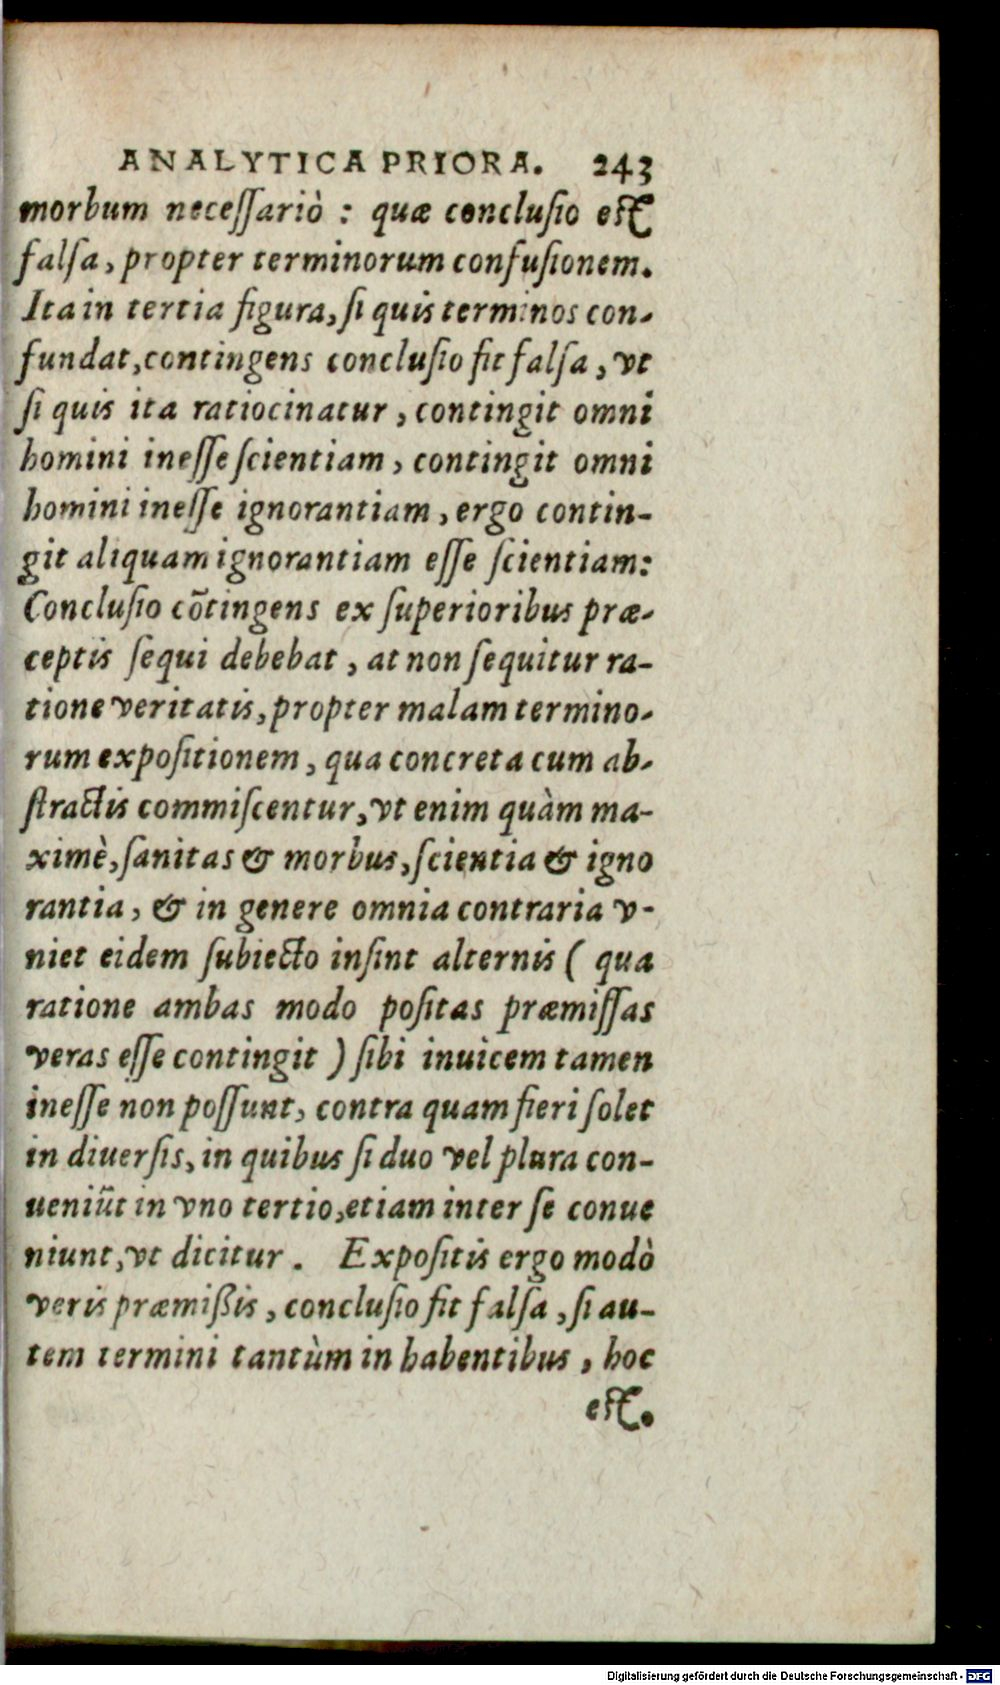 ANALYTICA PRIORA. 243
morbum neceſſariò : quæ concluſio eſt
falſa, propter terminorum confuſionem.
Ita in tertia figura, ſi quis terminos con-
fundat, contingens concluſio fit falſa, vt
ſi quis ita ratiocinatur, contingit omni
homini ineſſe ſcientiam, contingit omni
homini ineſſe ignorantiam, ergo contin-
git aliquam ignorantiam eſſe ſcientiam:
Concluſio cõtingens ex ſuperioribus præ-
ceptis ſequi debebat, at non ſequitur ra-
tione veritatis, propter malam termino-
rum expoſitionem, qua concreta cum ab-
ſtractis commiſcentur, vt enim quàm ma-
ximè, ſanitas & morbus, ſcientia & igno
rantia, & in genere omnia contraria v-
niet eidem ſubiecto inſint alternis ( qua
ratione ambas modo poſitas præmiſſas
veras eſſe contingit ) ſibi inuicem tamen
ineſſe non poſſunt, contra quam fieri ſolet
in diuerſis, in quibus ſi duo vel plura con-
ueniũt in vno tertio, etiam inter ſe conue
niunt, vt dicitur. Expoſitis ergo modò
veris præmißis, concluſio fit falſa, ſi au-
tem termini tantùm in habentibus, hoc
eſt.
Digitalisierung gefördert durch die Deutsche Forschungsgemeinschaft - DFG